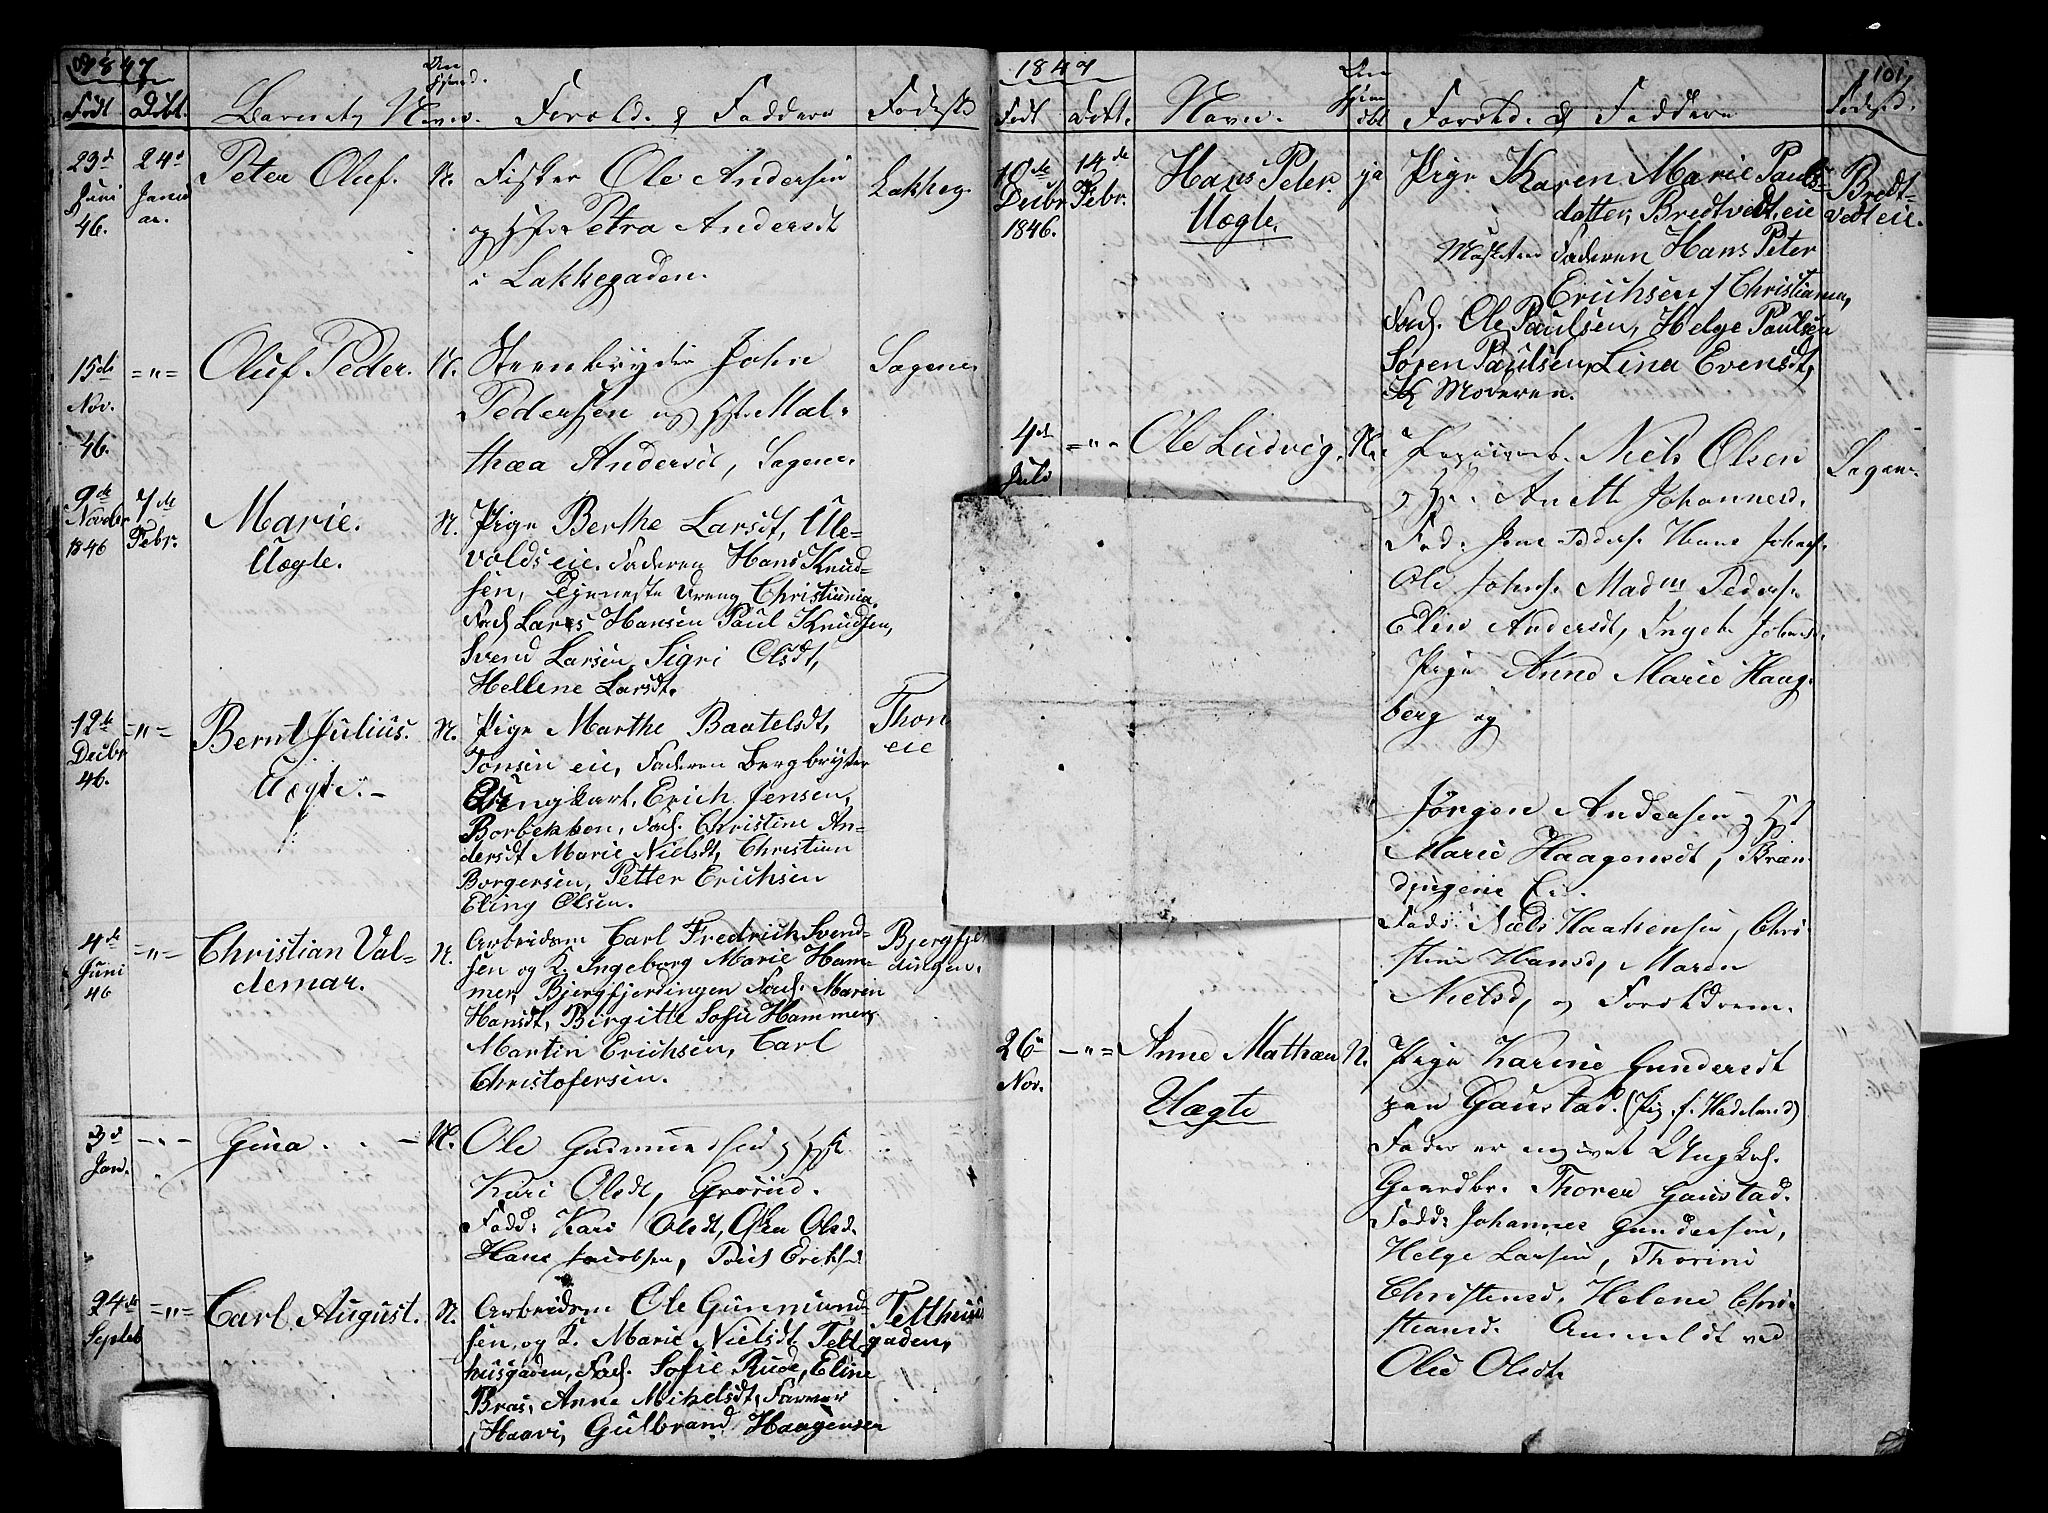 1847
Født Døbt. Barnets Navn. Foræld. & Faddere Fødest.
23d Juni 46. 24d Januar. Peter Oluf. N. Fisker Ole Andersen
og Hst. Petra Andersdt
i Lakkegaden.
Lakkeg.
15de Nov. 46. =„= Oluf Peder. N. Steenbryder John
Pedersen og Hst. Mal-
thæa Andersdt, Sagene.
Sagene
9de Novebr 1846 7de Febr. Marie. Uægte. N. Pige Berthe Larsdt, Ule-
volds eie. Faderen Hans Knud-
sen, Tjeneste Dreng Christiania.
Fad. Lars Hansen Paul Knudsen,
Svend Larsen, Sigri Olsdt,
Hellene Larsdt.
12te Decbr 46. =„= Bernt Julius. Uægte. N. Pige Marthe Baatelsdt,
Tonsen eie, Faderen Bergbryter
Ungkarl. Erich Jensen,
Borbekken, Fad. Christine An-
dersdt Marie Nielsdt, Christian
Borgersen, Petter Erichsen
Eling Olsen.
Thon
eie
4de Juni 46 =„= Christian Val-
demar. N. Arbeidsm Carl Fredrich Svend-
sen og K. Ingeborg Marie Ham-
mer, Bjergfjerdingen Fad. Maren
Hansdt, Birgitte Sofie Hammer,
Martin Erichsen, Carl
Christofersen.
Bjergfjer
dingen.
3d Jan. -„- Gina. N. Ole Gudmundsen og Hst.
Kari Olsdt, Grorud.
Fadd: Kari Olsdt, Olea Olsd.
Hans Jacobsen, Erikse
24de Septeb =„= Carl August. N. Arbeidsm Ole Gunmund-
sen, og K. Marie Nielsdt. Telt
husgaden, Fad. Sofie Rude, Eline
Bras, Anne Mikelsdt, Farmer
Haavi, Gulbrand Haagensen
Telthuus
gaden,
1847 101,
Født Døbt. Navn. Foræld. & Faddere Fødested.
10de Decbr 1846. 14de Febr. Hans Peter Uægte. ja Pige Karen Marie Pauls-
datter, Bredtvedt, eie
Faderen Hans Peter
Erichsen f Christiania,
Fad. Ole Paulsen, Helge Paulsen
Søren Paulsen, Lina Evensdt,
& Moderen.
Bredt-
vedt eie.
4de Juli =„= Ole Ludvig. N. Niels Olsen
og Hst. Anette Johannesd.
Fad: Jens Peders. Hans Johns.
Ole Johns. Madm Peders.
Elen Andersdt, Ingeb. Johnsd.
Sagene
Pige Anne Marie Haag-
berg og
Jørgen Andersen og Hst
Marie Haagensdt, Bræn-
Fadd: Niels Haakensen, Chri-
stine Hansd, Maren
Nielsd, og Forældrene.
26de Nov. -„= Anne Mathæa Uægte N. Pige Karine Gundersdt
paa Gaustad. (Pig. f. Hadeland)
Fader er angivet Ungkal.
Gaardbr. Thorer Gaustad.
Fadd: Johannes Gundersen,
Helge Larsen, Thorine
Christensd. Helene Chri-
stiansd. Anmeldt ved
Olea Olsdt.